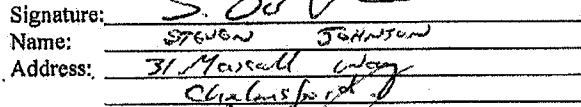 Signature:
Name: STEVEN JOHNSON
Address: 31 Marsall Way
Chelmsford